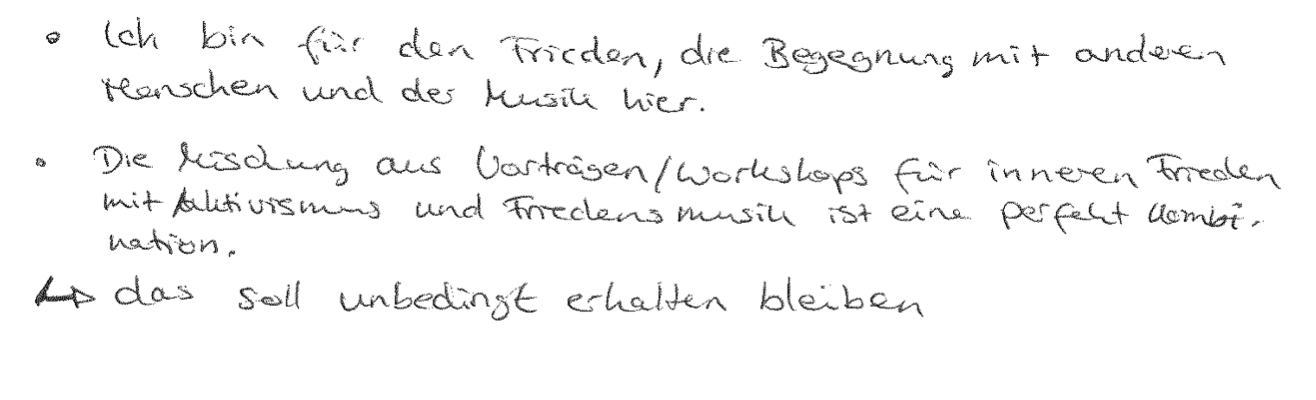 • Ich bin für den Frieden, die Begegnung mit anderen
Menschen und der Musik hier.
• Die Mischung aus Vorträgen/Workshops für inneren Frieden
mit Aktivismus und Friedensmusik ist eine perfekt Kombi-
nation.
↳ das soll unbedingt erhalten bleiben